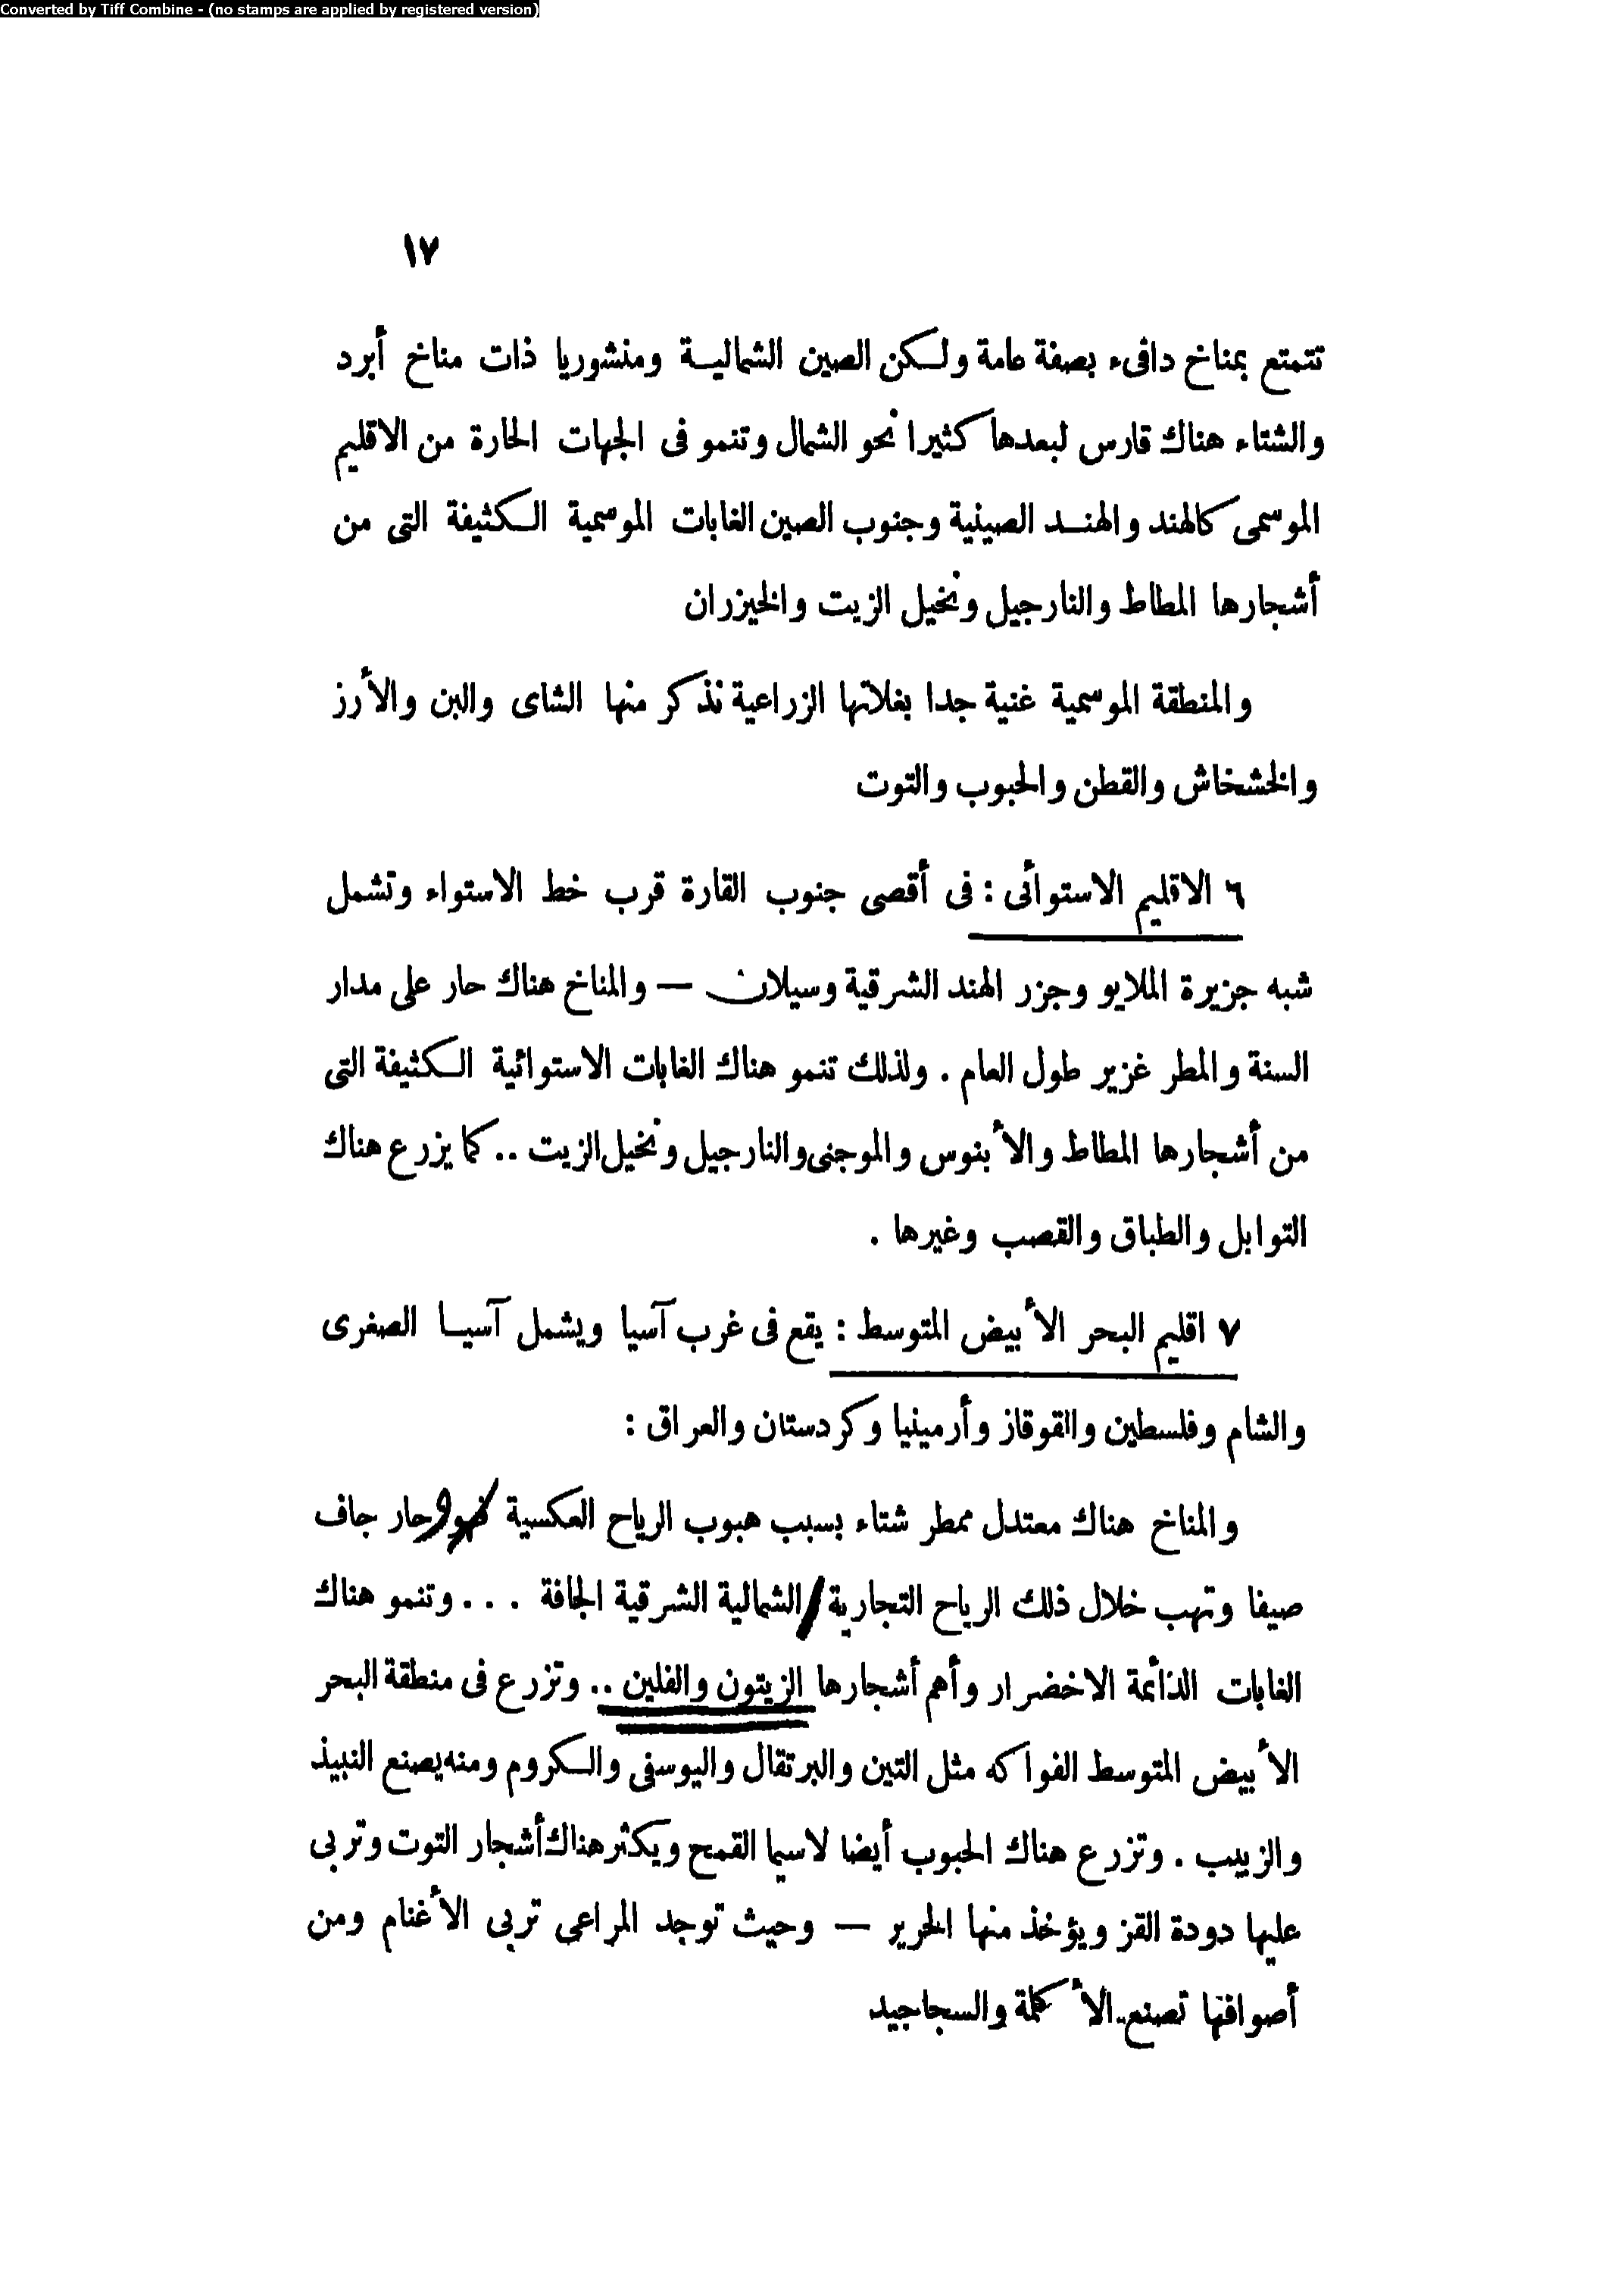 Converted by Tiff Combine - (no stamps are applied by registered version)
١٧
تتمتع بمناخ دافىء بصفة عامة ولكن الصين الشمالية ومنشوريا ذات مناخ أبرد
والشتاء هناك قارس لبعدها كثيرا نحو الشمال وتنمو فى الجهات الحارة من الاقليم
الموسمى كالهند والهند الصينية وجنوب الصين الغابات الموسمية الكثيفة التى من
أشجارها المطاط والنارجيل ونخيل الزيت والخيزران
والمنطقة الموسمية غنية جدا بغلاتها الزراعية نذكر منها الشاى والبن والأرز
والخشخاش والقطن والحبوب والتوت
٦ الاقليم الاستوائى : فى أقصى جنوب القارة قرب خط الاستواء وتشمل
شبه جزيرة الملايو وجزر الهند الشرقية وسيلان — والمناخ هناك حار على مدار
السنة والمطر غزير طول العام . ولذلك تنمو هناك الغابات الاستوائية الكثيفة التى
من أشجارها المطاط والأبنوس والموجنى والنارجيل ونخيل الزيت .. كما يزرع هناك
التوابل والطباق والقصب وغيرها .
٧ اقليم البحر الأبيض المتوسط : يقع فى غرب آسيا ويشمل آسيا الصغرى
والشام وفلسطين والقوقاز وأرمينيا وكردستان والعراق :
والمناخ هناك معتدل ممطر شتاء بسبب هبوب الرياح العكسية حار جاف
صيفا وتهب خلال ذلك الرياح التجارية الشمالية الشرقية الجافة . . . وتنمو هناك
الغابات الدائمة الاخضرار وأهم أشجارها الزيتون والفلين .. وتزرع فى منطقة البحر
الأبيض المتوسط الفواكه مثل التين والبرتقال واليوسفى والكروم ومنه يصنع النبيذ
والزبيب . وتزرع هناك الحبوب أيضا لاسيما القمح ويكثر هناك أشجار التوت وتربى
عليها دودة القز ويؤخذ منها الحرير — وحيث توجد المراعى تربى الأغنام ومن
أصوافها تصنع الأكلمة والسجاجيد